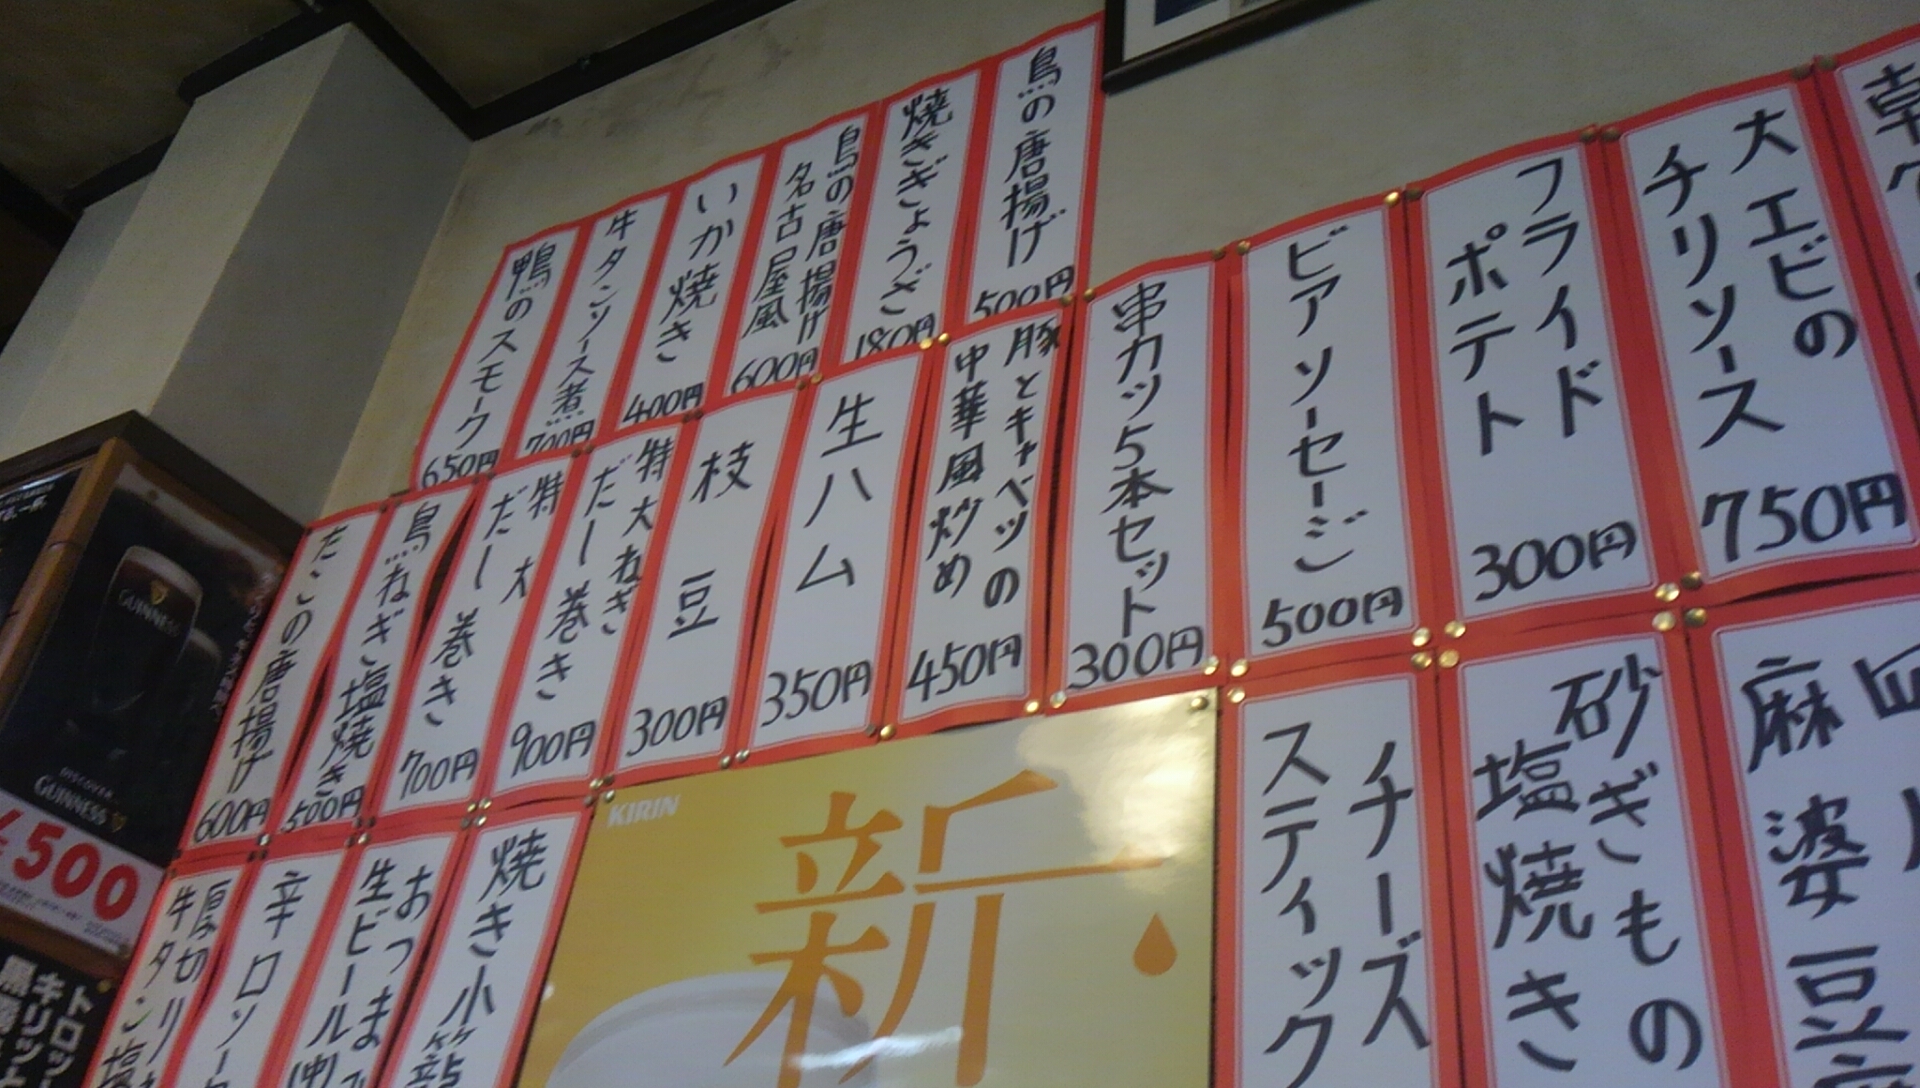 鳥の唐揚げ
500円
焼きぎょうざ
180円
鳥の唐揚げ
名古屋風
600円
いか焼き
400円
牛タンソース煮
700円
鴨のスモーク
650円
大エビの
チリソース
750円
フライド
ポテト
300円
ビアソーセージ
500円
串カツ5本セット
300円
豚とキャベツの
中華風炒め
450円
生ハム
350円
枝豆
300円
特大ねぎ
だし巻き
900円
特大
だし巻き
700円
鳥ねぎ塩焼き
500円
たこの唐揚げ
600円
麻婆豆
砂ぎもの
塩焼き
チーズ
スティック
KIRIN
新
焼き小籠
おつまみ
生ビール(中)
辛口ソー
厚切り
牛タン塩
GUINNESS
DISCOVER
GUINNESS
500